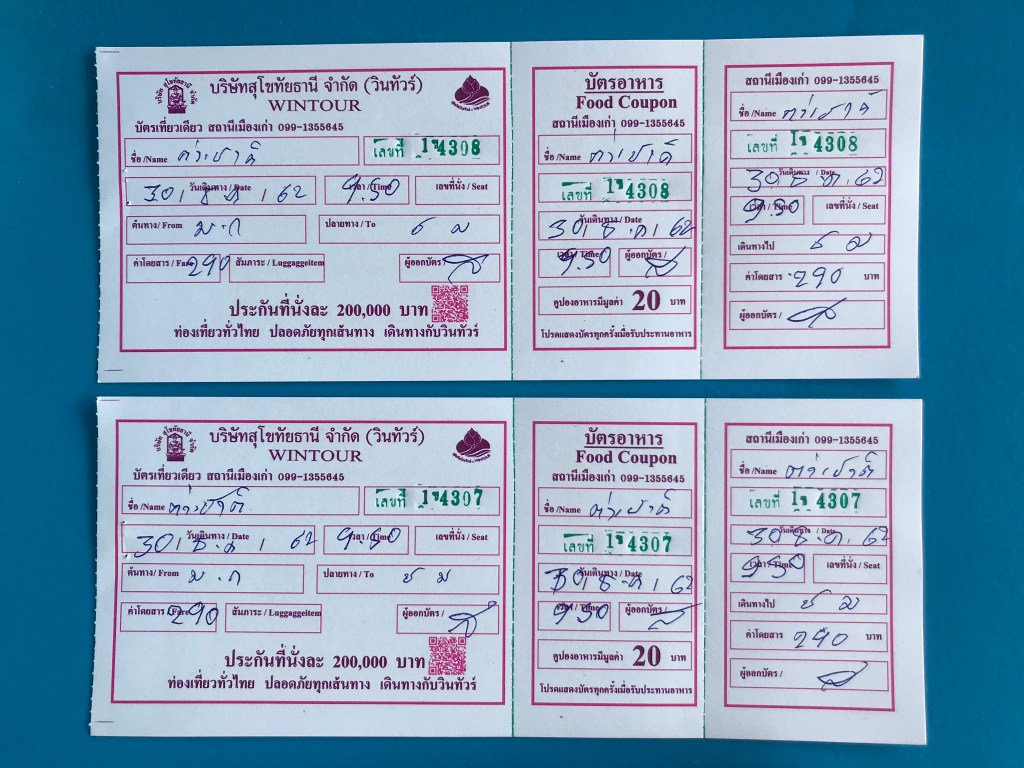 บริษัทสุโขทัยธานี จำกัด (วินทัวร์)
WINTOUR
บัตรเที่ยวเดียว สถานีเมืองเก่า 099-1355645
ชื่อ /Name ต่างชาติ
เลขที่ 14308
วันเดินทาง / Date 30 / ธ.ค / 62
เวลา / Time 9.50
เลขที่นั่ง / Seat
ต้นทาง/ From ม.ก
ปลายทาง / To ช ม
ค่าโดยสาร / Fare 290
สัมภาระ / Luggageitem
ผู้ออกบัตร /
ประกันที่นั่งละ 200,000 บาท
ท่องเที่ยวทั่วไทย ปลอดภัยทุกเส้นทาง เดินทางกับวินทัวร์
บัตรอาหาร
Food Coupon
สถานีเมืองเก่า 099-1355645
ชื่อ /Name ต่างชาติ
เลขที่ 14308
วันเดินทาง / Date 30 / ธ.ค / 62
เวลา / Time 9.50
ผู้ออกบัตร /
คูปองอาหารมีมูลค่า 20 บาท
โปรดแสดงบัตรทุกครั้งเมื่อรับประทานอาหาร
สถานีเมืองเก่า 099-1355645
ชื่อ /Name ต่างชาติ
เลขที่ 14308
วันเดินทาง / Date 30 ธ.ค. 62
เวลา / Time 9.50
เลขที่นั่ง / Seat
เดินทางไป ช ม
ค่าโดยสาร 290 บาท
ผู้ออกบัตร /
บริษัทสุโขทัยธานี จำกัด (วินทัวร์)
WINTOUR
บัตรเที่ยวเดียว สถานีเมืองเก่า 099-1355645
ชื่อ /Name ต่างชาติ
เลขที่ 14307
วันเดินทาง / Date 30 / ธ.ค / 62
เวลา / Time 9.50
เลขที่นั่ง / Seat
ต้นทาง/ From ม.ก
ปลายทาง / To ช ม
ค่าโดยสาร / Fare 290
สัมภาระ / Luggageitem
ผู้ออกบัตร /
ประกันที่นั่งละ 200,000 บาท
ท่องเที่ยวทั่วไทย ปลอดภัยทุกเส้นทาง เดินทางกับวินทัวร์
บัตรอาหาร
Food Coupon
สถานีเมืองเก่า 099-1355645
ชื่อ /Name ต่างชาติ
เลขที่ 14307
วันเดินทาง / Date 30 / ธ.ค / 62
เวลา / Time 9.50
ผู้ออกบัตร /
คูปองอาหารมีมูลค่า 20 บาท
โปรดแสดงบัตรทุกครั้งเมื่อรับประทานอาหาร
สถานีเมืองเก่า 099-1355645
ชื่อ /Name ต่างชาติ
เลขที่ 14307
วันเดินทาง / Date 30 ธ.ค. 62
เวลา / Time 9.50
เลขที่นั่ง / Seat
เดินทางไป ช ม
ค่าโดยสาร 290 บาท
ผู้ออกบัตร /